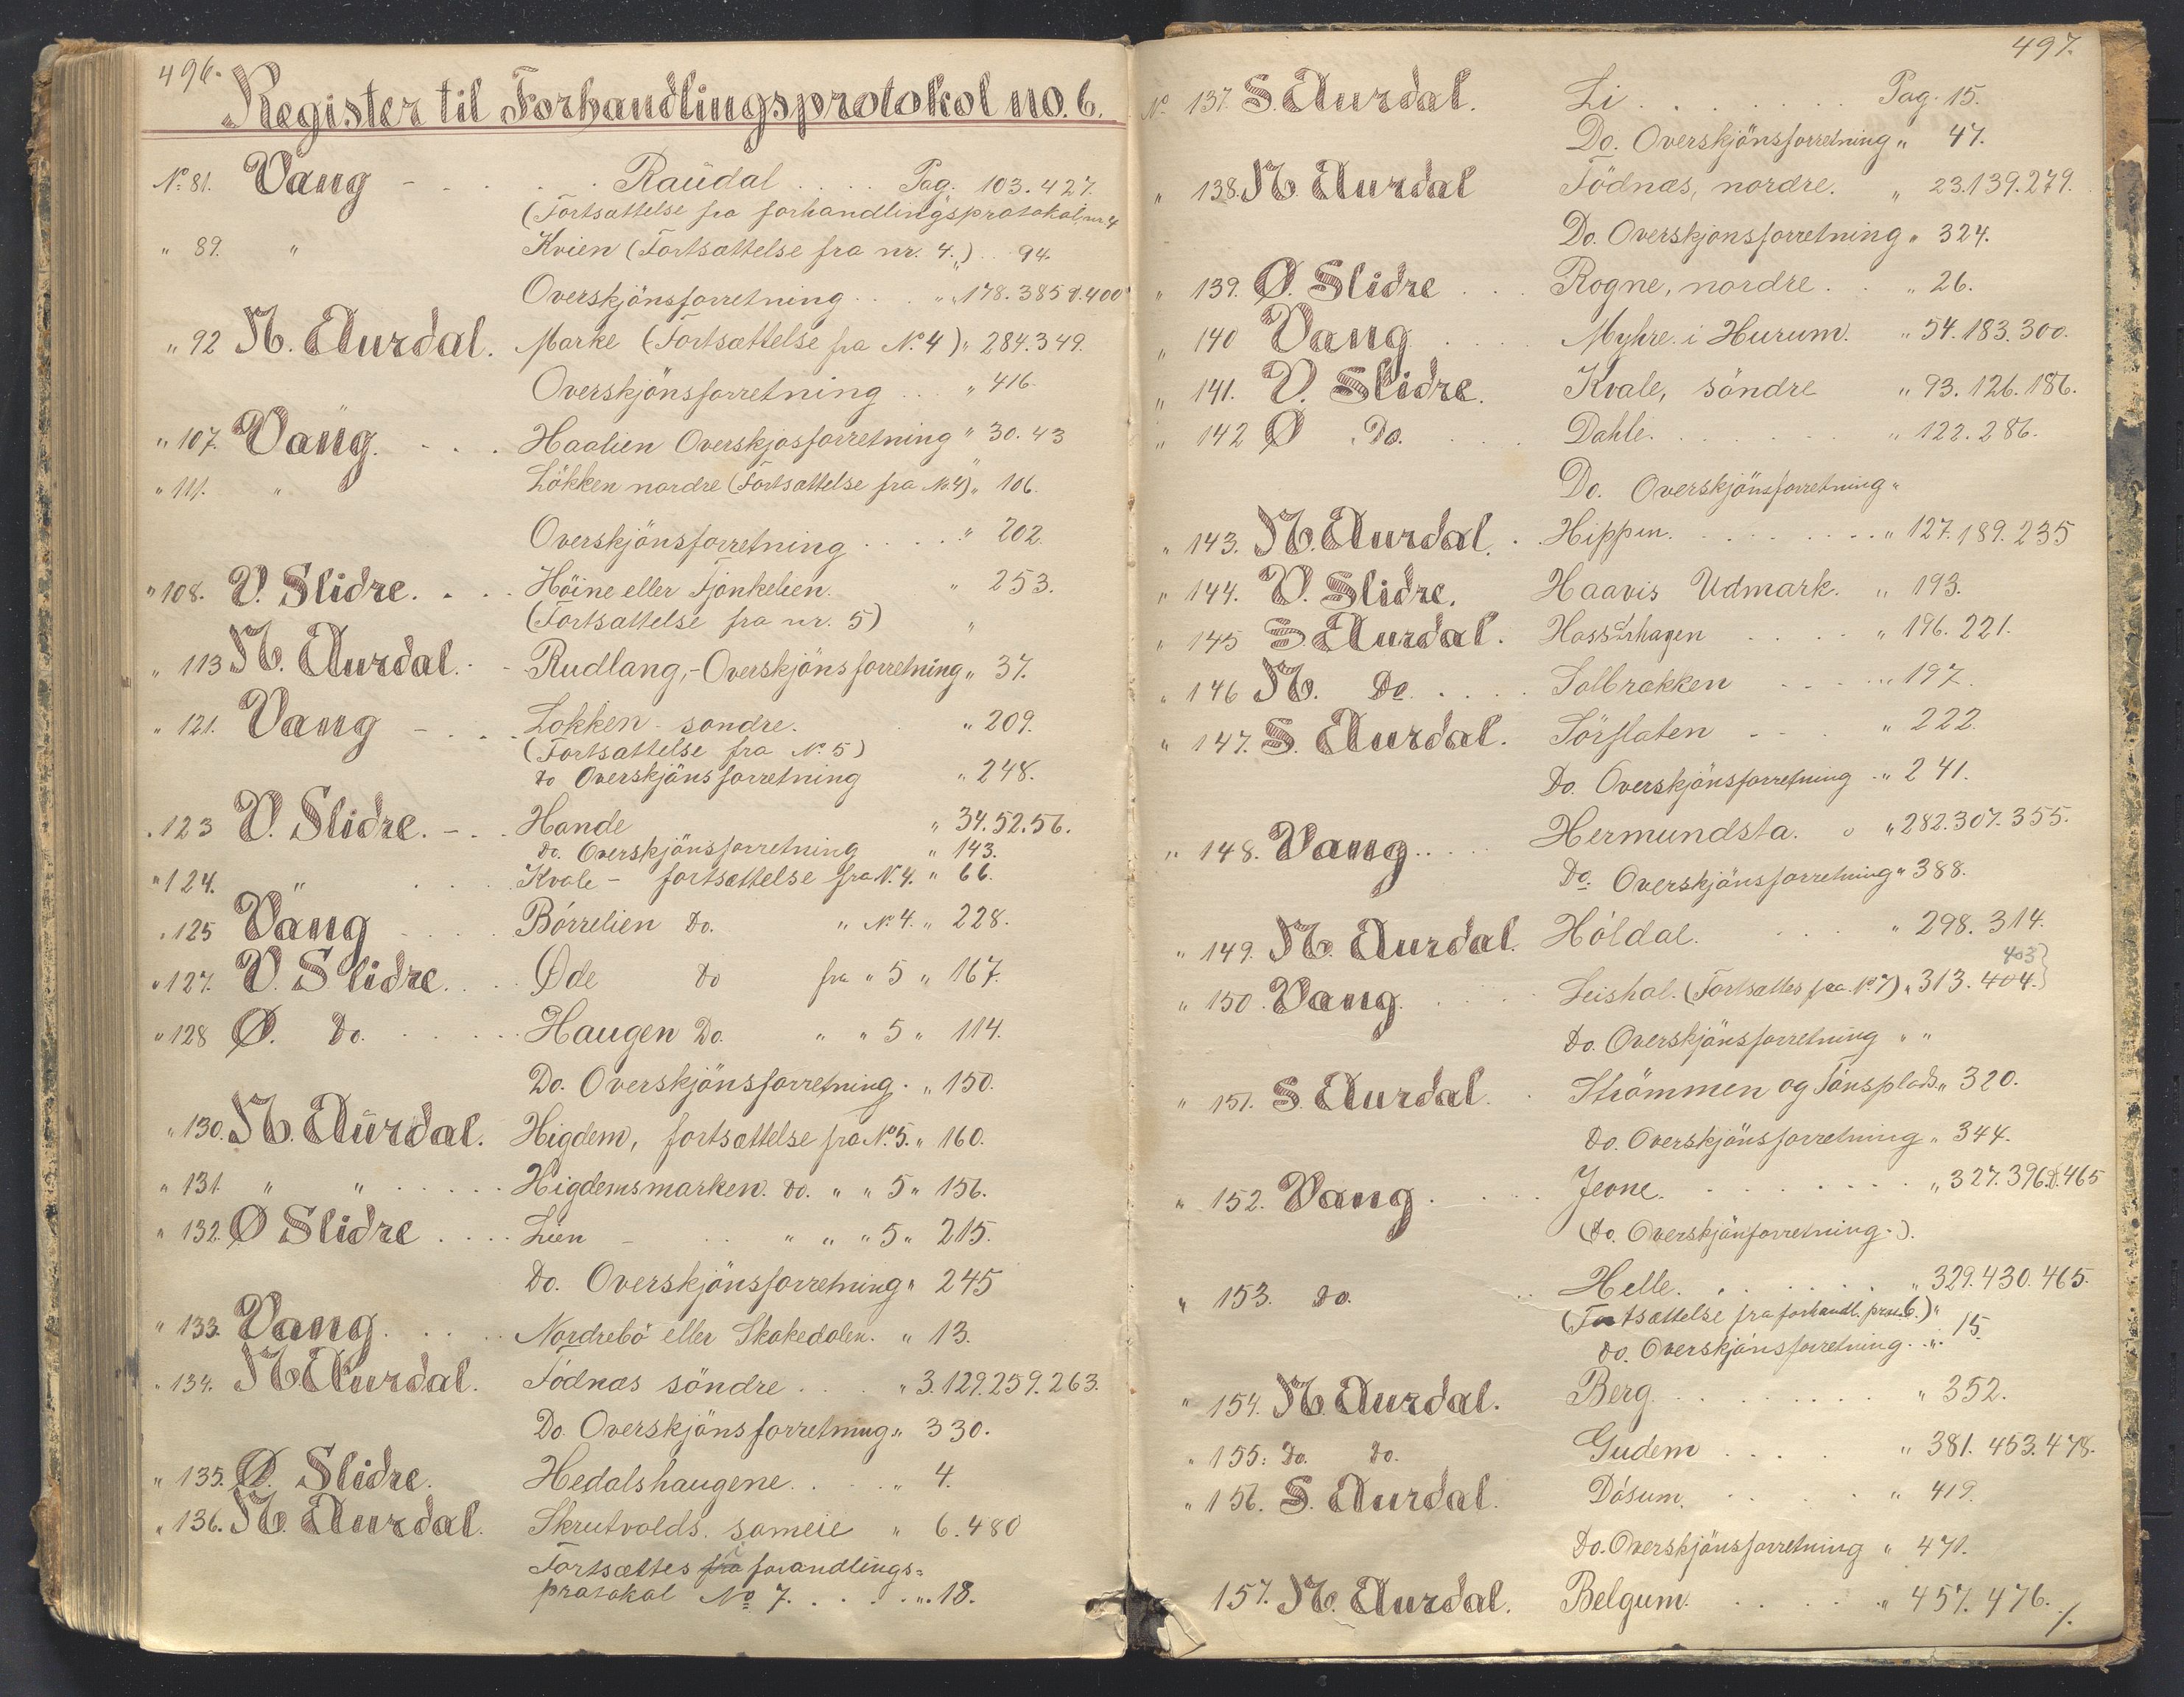 496.
Register til Forhandlingsprotokol no. 6.
No. 81. Vang - . . . . Raudal . . . . Pag. 103. 427.
(Fortsættelse fra forhandlingsprotokol nr 4
" 89. " Kvien (Fortsættelse fra nr. 4.") . . 94.
Overskjönsforretning . . . " 178. 385 400
" 92 N. Aurdal. Marke (Fortsættelse fra No 4) " 284. 349.
Overskjönsforretning . . " 416.
" 107. Vang. - . . . Haalien Overskjösforretning " 30. 43
" 111. " Lökken nordre (Fortsættelse fra No. 4) " 106.
Overskjönsforretning . . . . " 202.
" 108. V. Slidre. . . . Höine eller Fjonkelien. " 253.
(Fortsættelse fra nr. 5) "
" 113 N. Aurdal. - - Rudlang, - Overskjönsforretning " 37.
" 121. Vang - . . . Lökken - söndre. " 209.
(Fortsættelse fra No. 5)
do Overskjönsforretning " 248.
" 123 V. Slidre. - . . Hande " 34. 52. 56.
do. Overskjönsforretning " 143.
" 124. " . . . Kvale - fortsættelse fra N. 4. " 66.
" 125 Vang - . . . Börrelien do. " No. 4. " 228.
" 127. V. Slidre. . . . Øde do fra " 5 " 167.
" 128 Ø. do. . . . . Haugen Do. " " 5 " 114.
Do. Overskjönsforretning . " 150.
" 130. N. Aurdal. Higdem, fortsættelse fra No. 5. " 160.
" 131. " " . . . . . Higdemsmarken. do. " " 5 " 156.
" 132. Ø Slidre . . . . Lien - . . " " " 5 " 215.
Do. Overskjönsforretning " 245
" 133. Vang. . . . . Nordrebö eller Skakedalen. " 13.
" 134. N. Aurdal. Födnæs söndre . . . " 3. 129. 259. 263.
Do. Overskjönsforretning " 330.
" 135. Ø. Slidre. Hedalshaugene. . . . " 4.
" 136. N. Aurdal. Skrutvolds. sameie " 6. 480
Fortsættes fra i forandlings=
protokol No 7. . . . . " . 18.
497.
No. 137. S. Aurdal. Li . . . . . . . Pag. 15.
Do. Overskjönsforretning " 47.
" 138. N. Aurdal Födnæs, nordre. " 23. 139. 279.
Do. Overskjonsforretning " 324.
" 139. Ø. Slidre . . . Rogne, nordre . . " 26.
" 140 Vang . . . . Myhre. i Hurum. " 54. 183. 300.
" 141. V. Slidre. Kvale, söndre " 93. 126. 186.
" 142 Ø . Do. . . . . Dahle. . . . . . . " 122. 286.
Do. Overskjönsforretning "
" 143. N. Aurdal. . Hippin. . . . . . . . " 127. 189. 235
" 144. V. Slidre. Haavis Udmark. " 193.
" 145 S. Aurdal. . . . . " 196. 221.
" 146 N. Do. . . . . Solbrækken - - - . . . 197.
" 147. S. Aurdal. Sörflaten - - . . " 222.
Do. Overskjönsforretning . " 241.
" 148. Vang. . . . . Hermundsta. " 282. 307. 355.
Do. Overskjönsforretning " 388.
" 149. N. Aurdal. Höldal. . . . " 298. 314.
403
" 150. Vang. . . . . Leishol. (Fortsættes fra. No. 7) " 313. 404.
Do. Overskjönsforretning " "
" 151. S. Aurdal. . Strömmen og Tönsplads. " 320.
do. Overskjönsforretning " 344.
" 152. Vang. . . . Jevne. . . . . . . . " 327. 396. 465
(do. Overskjönforretning - ).
" 153. do. . . Helle. . . . . . . " 329. 430. 465.
(Fortsættelse fra forhandl. 6.) "
do. Overskjönsforretning. . " . 15.
" 154. N. Aurdal. Berg. . . . . . . " 352.
" 155: Do. Do. Gudem . . . . " 381. 453. 478.
" 156. S. Aurdal. Dösum. . . . . " 419.
Do. Overskjönsforretning " 471.
157. N. Aurdal. Belgum. . . . . . " 457. 476. /.